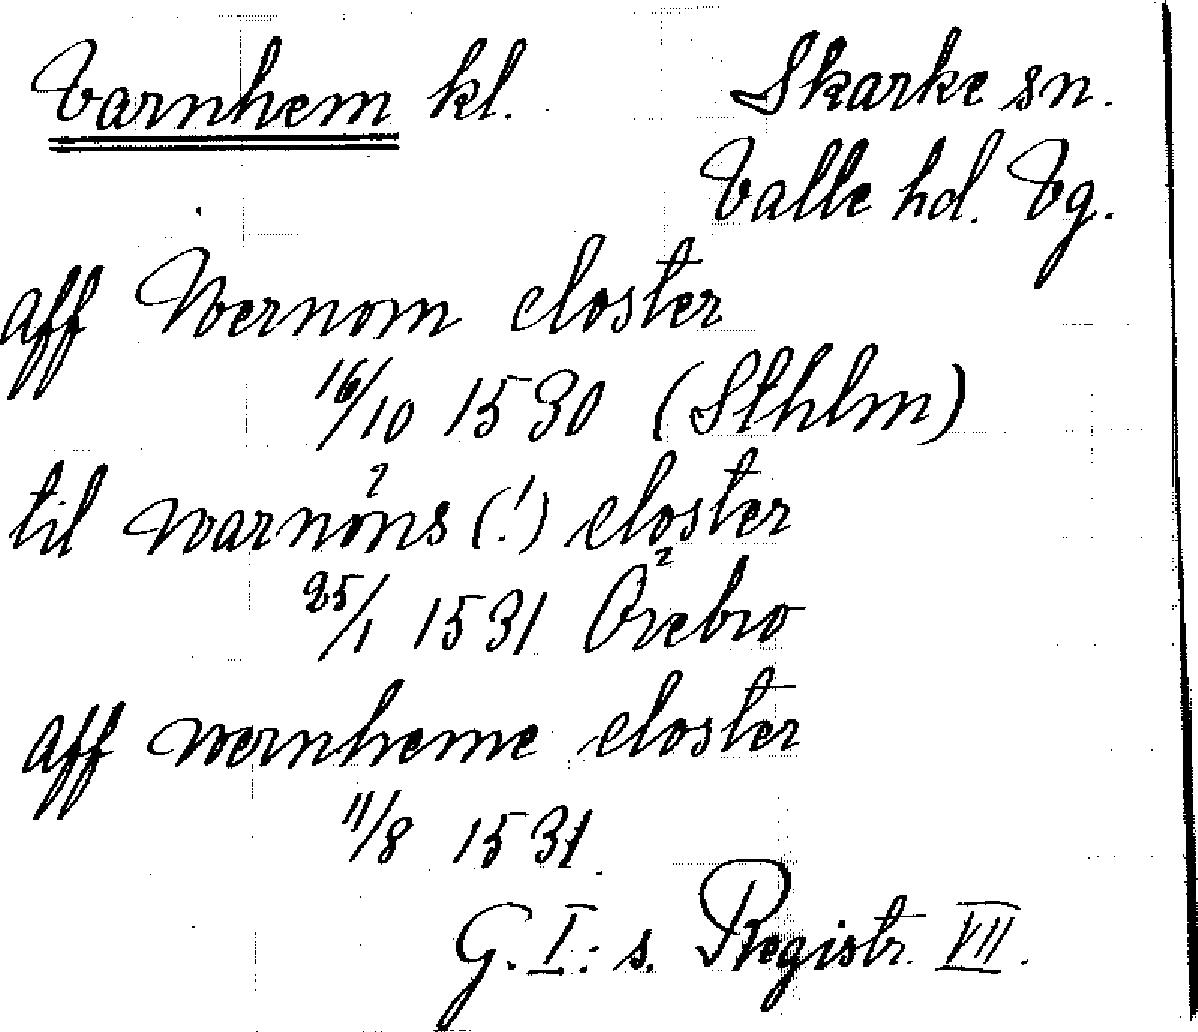 Varnhem kl. Skarke sn.
Valle hd. Vg.
aff Wernom closter
16/10 1530 (Sthlm)
til warnöns (!) closter
25/1 1531 Örebro
aff wernheme closter
11/8 1531.
G. I: s. Registr. VII.